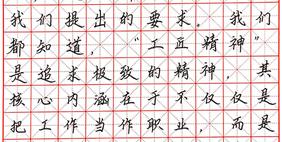 我们提出的要求。我们
都知道，“工匠精神”
是追求极致的精神，其
核心内涵在于不仅仅是
把工作当作职业，而是